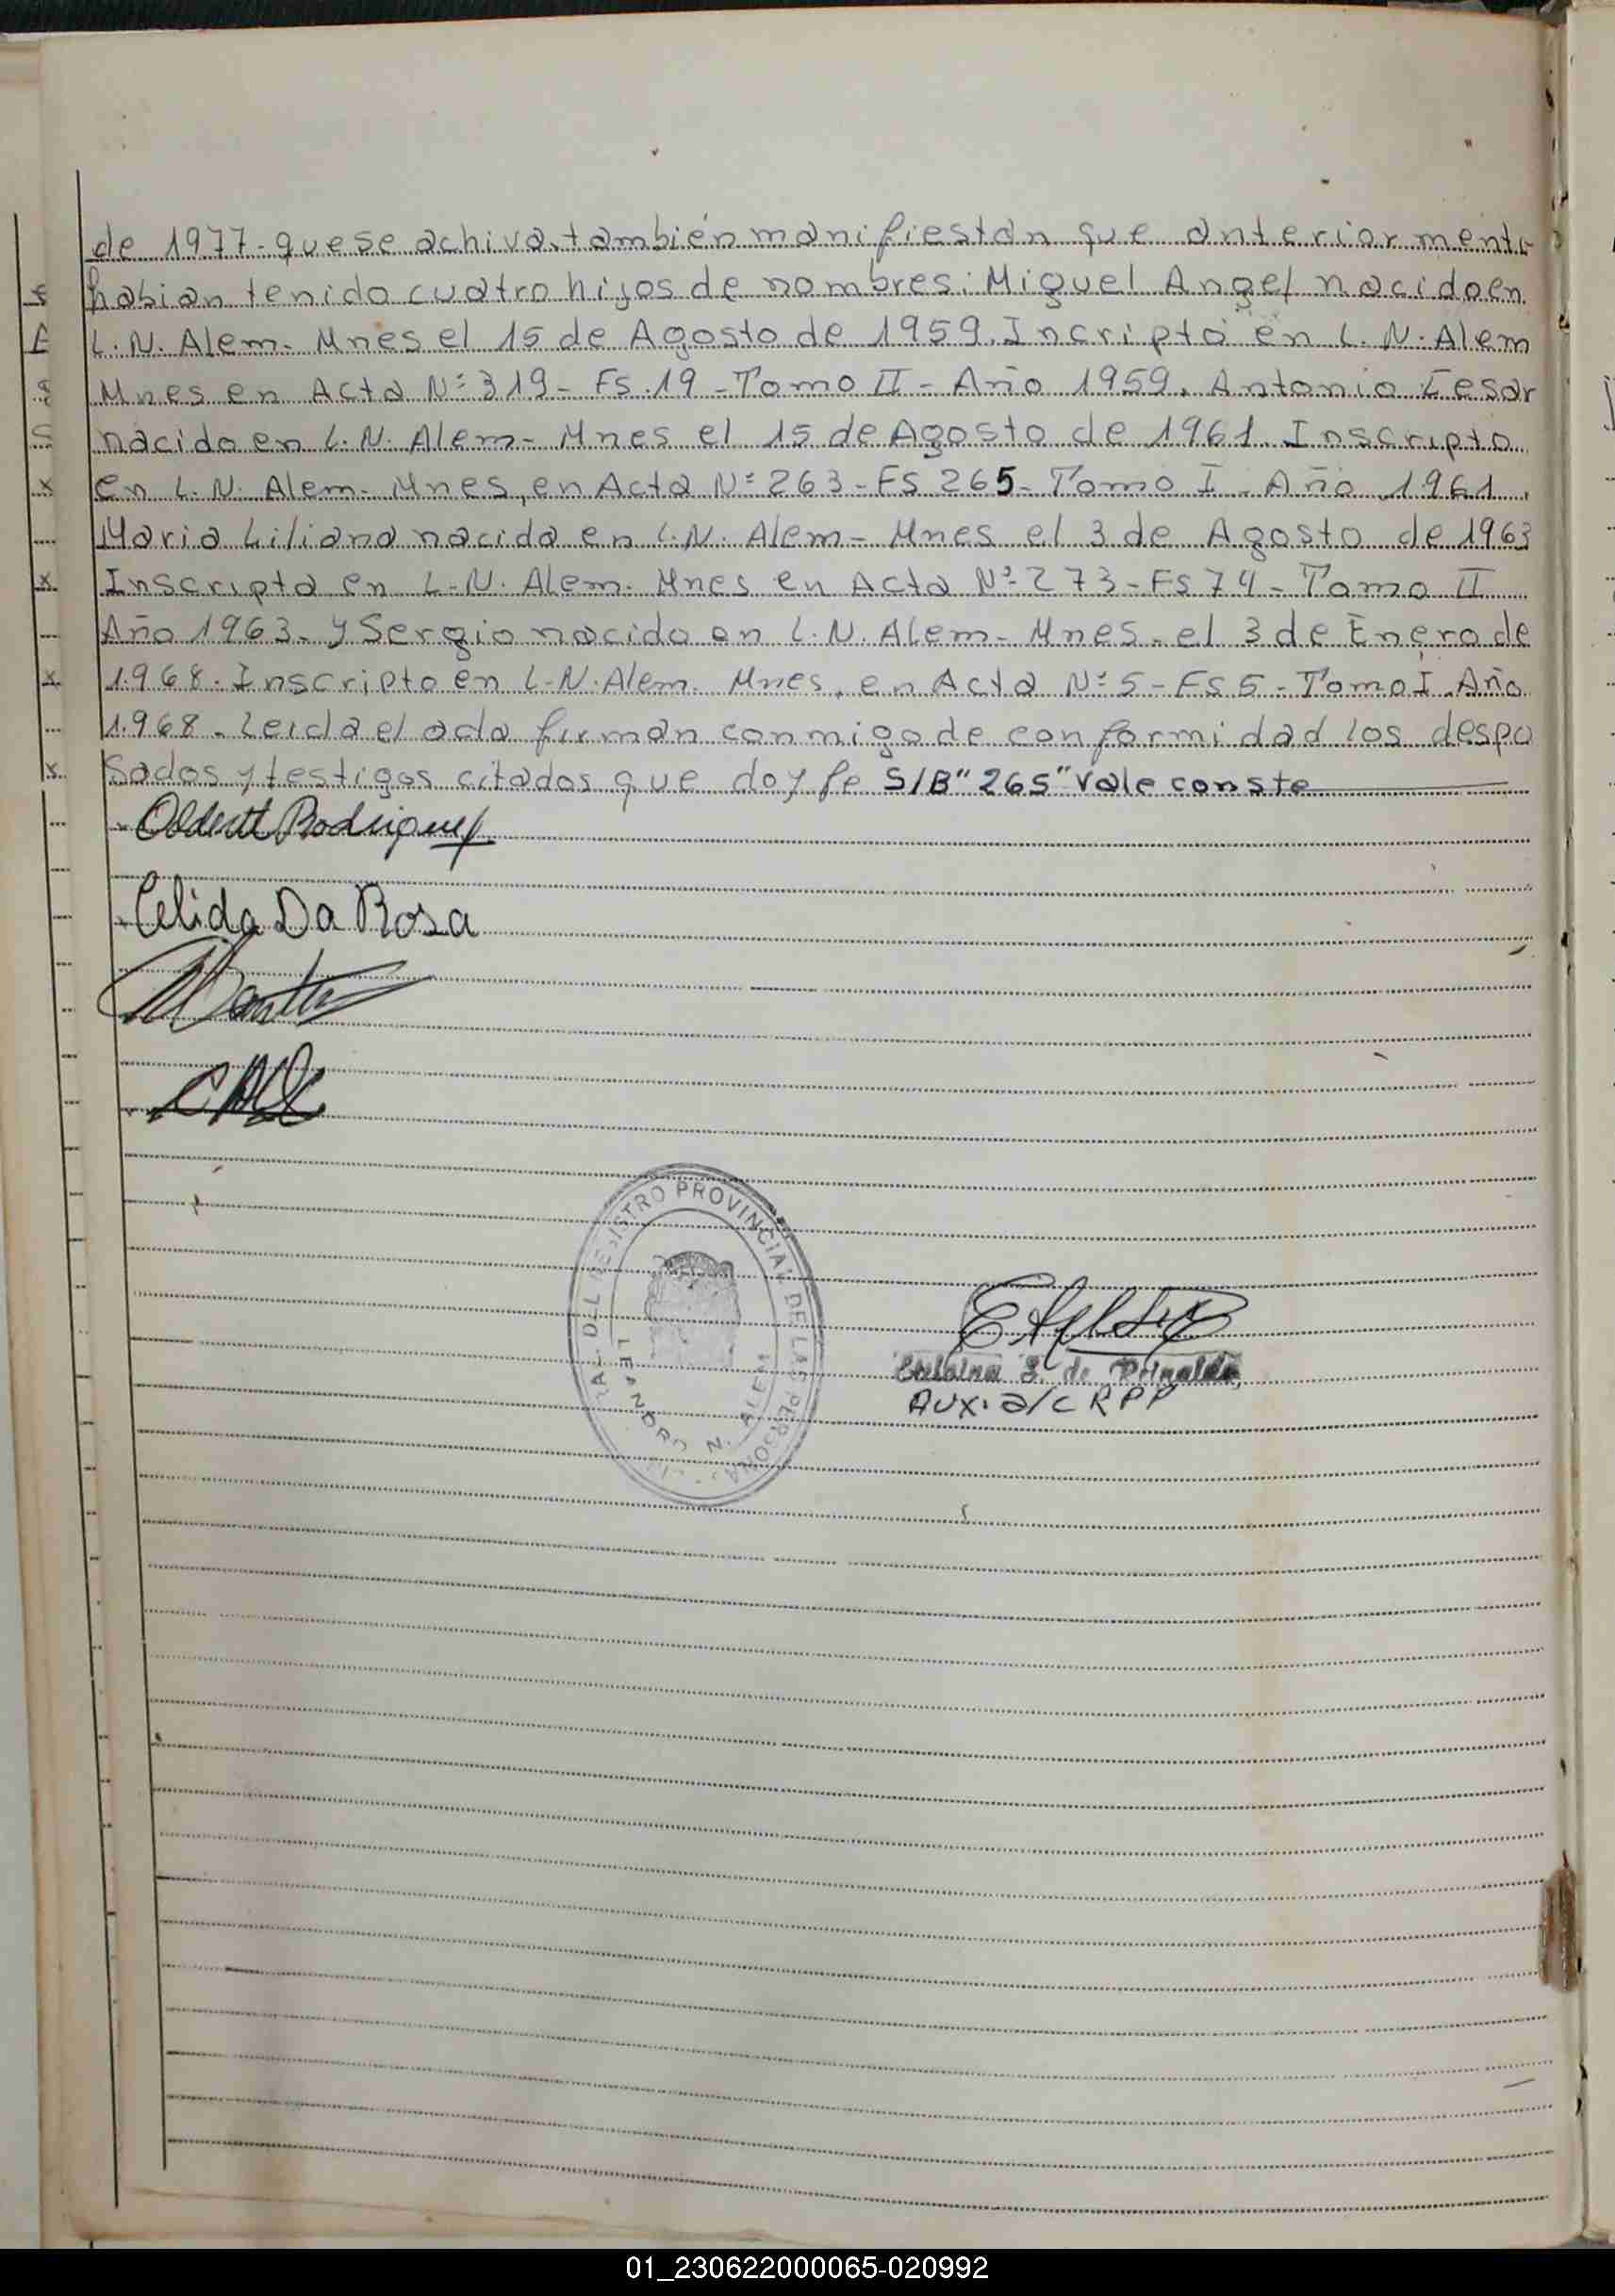 de 1977. que se achiva. también manifiestan que anteriormente
habian tenido cuatro hijos de nombres: Miguel Angel nacido en
L. N. Alem - Mnes el 15 de Agosto de 1959. Incripto en L. N. Alem
Mnes en Acta Nº 319 - Fs. 19 - Tomo II - Año 1959. Antonio Cesar
nacido en L. N. Alem - Mnes el 15 de Agosto de 1961. Inscripto
en L. N. Alem - Mnes, en Acta Nº 263 - Fs 265 - Tomo I - Año 1961.
Maria Liliana nacida en L. N. Alem - Mnes el 3 de Agosto de 1963
Inscripta en L. N. Alem. Mnes en Acta Nº 273 - Fs 74 - Tomo II
Año 1963. y Sergio nacido en L. N. Alem - Mnes. el 3 de Enero de
1.968. Inscripto en L. N. Alem. Mnes, en Acta Nº 5 - Fs 5 - Tomo I. Año
1.968. Leida el acta firman conmigo de conformidad los despo
sados y testigos citados que doy fe S/B "265" Vale conste
Rodriguez
Celida Da Rosa
DEL REGISTRO PROVINCIAL DE LAS PERSONAS
LEANDRO N. ALEM
de
Aux. a/c R P P
01_230622000065-020992